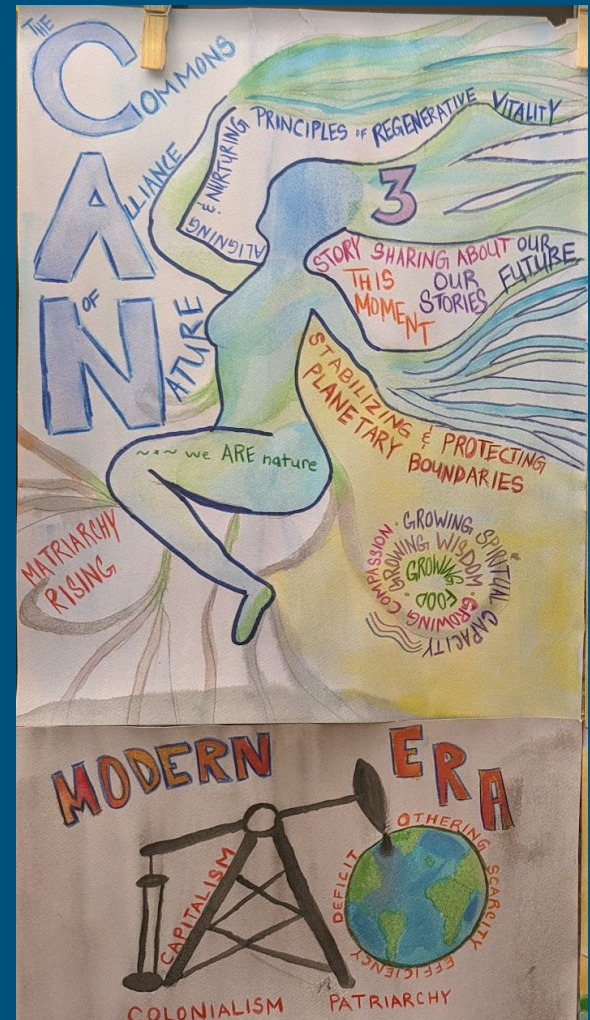 THE
COMMONS
ALLIANCE
OF
NATURE
ALIGNING & NURTURING
PRINCIPLES OF REGENERATIVE VITALITY
3
STORY SHARING ABOUT
THIS
MOMENT
OUR
STORIES
OUR
FUTURE
STABILIZING & PROTECTING
PLANETARY BOUNDARIES
~*~ we ARE nature
MATRIARCHY
RISING
GROWING FOOD · GROWING WISDOM · GROWING COMPASSION · GROWING SPIRITUAL CAPACITY
MODERN ERA
CAPITALISM
DEFICIT
OTHERING
SCARCITY
EFFICIENCY
COLONIALISM
PATRIARCHY